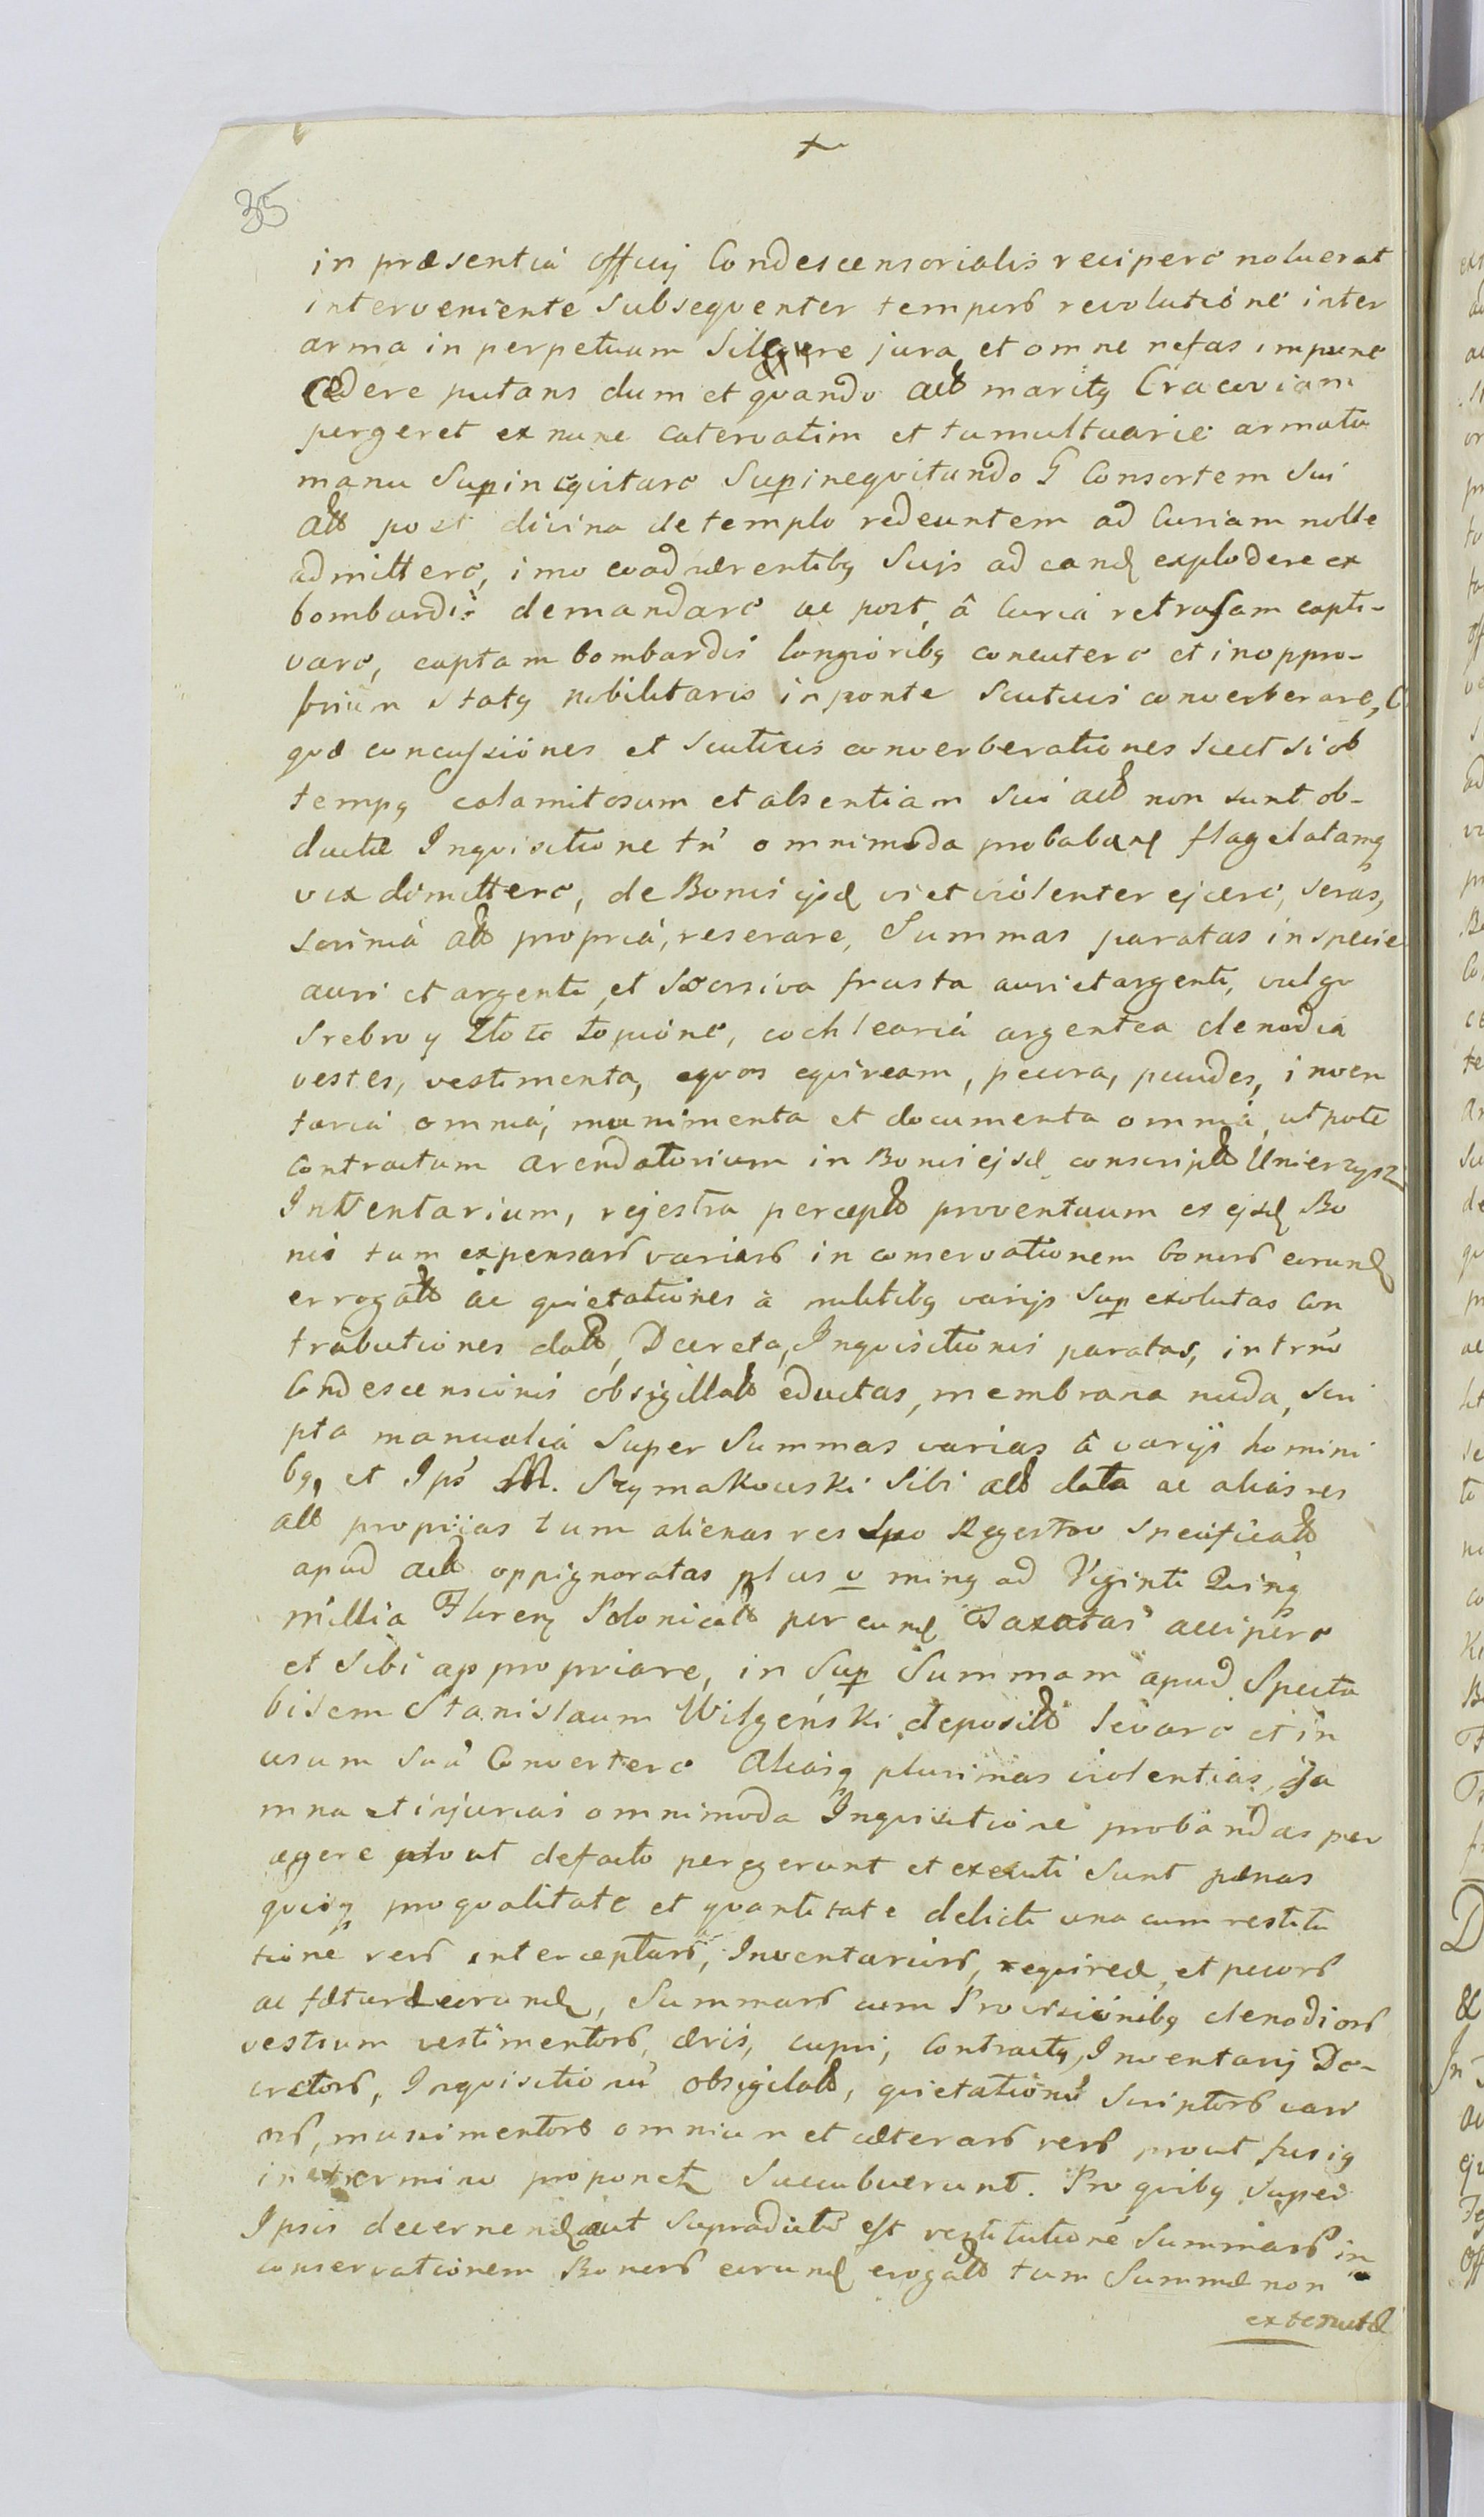 35
in præsentiá officij Condescensorialis recipere noluerat
interveniente subsequenter temporis revolutione inter
arma in perpetuum silere jura, et omne nefas impune
cædere putans dum et quando act maritq Cracoviam
pergeret ex nunc catervatim et tumultuarie armata
manu Sup inequitare Supinequitando Consortem sui
act post divina de templo redeuntem ad Curiam nolle
admittere, imo coadhærentibq suis ad eand explodere ex
bombardis demandare ac post, â Curiá retrusam capti-
vare, captam bombardis longioribq concutere et in oppro-
brium statq nobilitaris in ponte scuticis converberare,
quæ concussiones et scuticis converberationes licet si ob
tempq calamitosum et absentiam sui act non sunt ob-
ductæ Inquisitione tn omnimoda probaband flagelatamq
vix dimittere, de Bonis ejsd vi et violenter ejcere, seras,
scriniá act propriá, reserare, Summas paratas in specie
auri et argenti, et frusta auri et argenti, vulgo
srebro y złoto topione, cochleariá argentea clenodia
vestes, vestimenta, equos equiream, pecora, pecudes, inven
tariá omniá, munimenta et documenta omniá, utpote
Contractum arendatorium in Bonis ejsd conscript
Inventarium, rejestra percept proventuum ex ejsd Bo
nis tum expensarum variarum in conservationem bonorum eorund
errogat ac quietationes à militibq varijs Sup exolutas Con
tributiones dat, Decreta, Inquisitionis paratas, in trno
Condescensionis obsigillat eductas, membrana nuda, scri
pta manualiá super Summas varias â varijs homini
bq, et Ips M. Szymakowski sibi act data ac alias res
act proprias tum alienas res Regestro specificat
apud act oppignoratas plus v minq ad Viginti Quinq
millia Floren Polonical per eund Taxatas accipere
et sibi appropriare, in Sup Summam apud Specta
bilem Stanislaum Wilgeński deposit levare et in
usum suu Convertere Aliasq plurimas violentias, da
mna et injurias omnimoda Inquisitione probandas per
agere prout defacto peregerunt et executi sunt pænas
quoq pro qualitate et quantitate delicti una cum restitu
tione rerum interceptarum, Inventariorum, equireæ, et pecorum
ac fæturæ eorund, Summarum cum Provisionibq clenodiorum
vestium vestimentorum, æris, cupri, Contractq, Inventarij De-
cretorum, Inquisitionu obsigilat, quietationu scriptorum vario
rum, munimentorum omnium et cæterarum rerum prout fusiq
in termino proponet succubuerunt. Pro quibq super
Ipsis decernend aut supradicto est restitutione Summarum in
conservationem Bonorum eorund erogat tum Summæ non
extenutæ